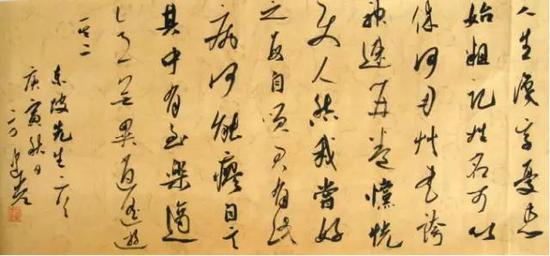 人生識字憂患
始粗記姓名可以
休何用草書誇
神速開卷惝恍
人愁我嘗好
之每自笑君有此
病何能瘳自言
其中有至樂適
意無異逍遙遊
東坡先生
庚寅秋日